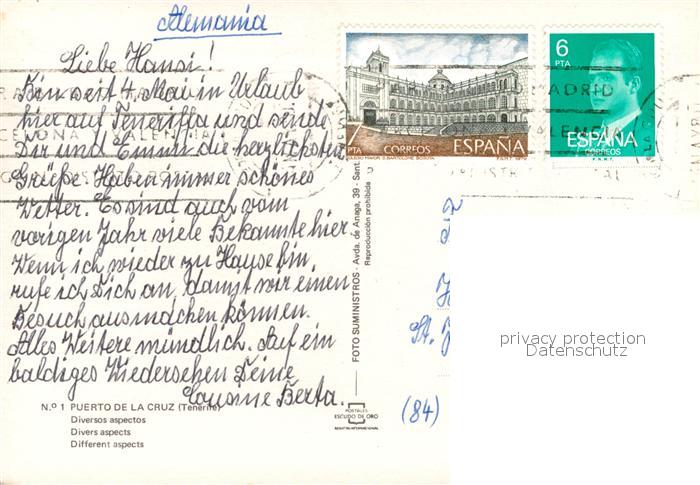 Alemania
Liebe Hansi!
Bin seit 4. Mai in Urlaub
hier auf Teneriffa und sende
Dir und Emmi die herzlichsten
Grüße. Haben immer schönes
Wetter. Es sind auch vom
vorigen Jahr viele Bekannte hier.
Wenn ich wieder zu Hause bin,
rufe ich Dich an, damit wir einen
Besuch ausmachen können.
Alles Weitere mündlich. Auf ein
baldiges Wiedersehen Deine
Cousine Berta.
N.º 1 PUERTO DE LA CRUZ (Tenerife)
Diversos aspectos
Divers aspects
Different aspects
FOTO SUMINISTROS - Avda. de Anaga, 39 - Sant.
Reproducción prohibida
POSTALES
ESCUDO DE ORO
7 PTA
CORREOS
ESPAÑA
COLEGIO MAYOR S. BARTOLOME BOGOTA
F.N.M.T. 1979
6
PTA
ESPAÑA
CORREOS
F.N.M.T.
MADRID
St.
(84)
privacy protection
Datenschutz